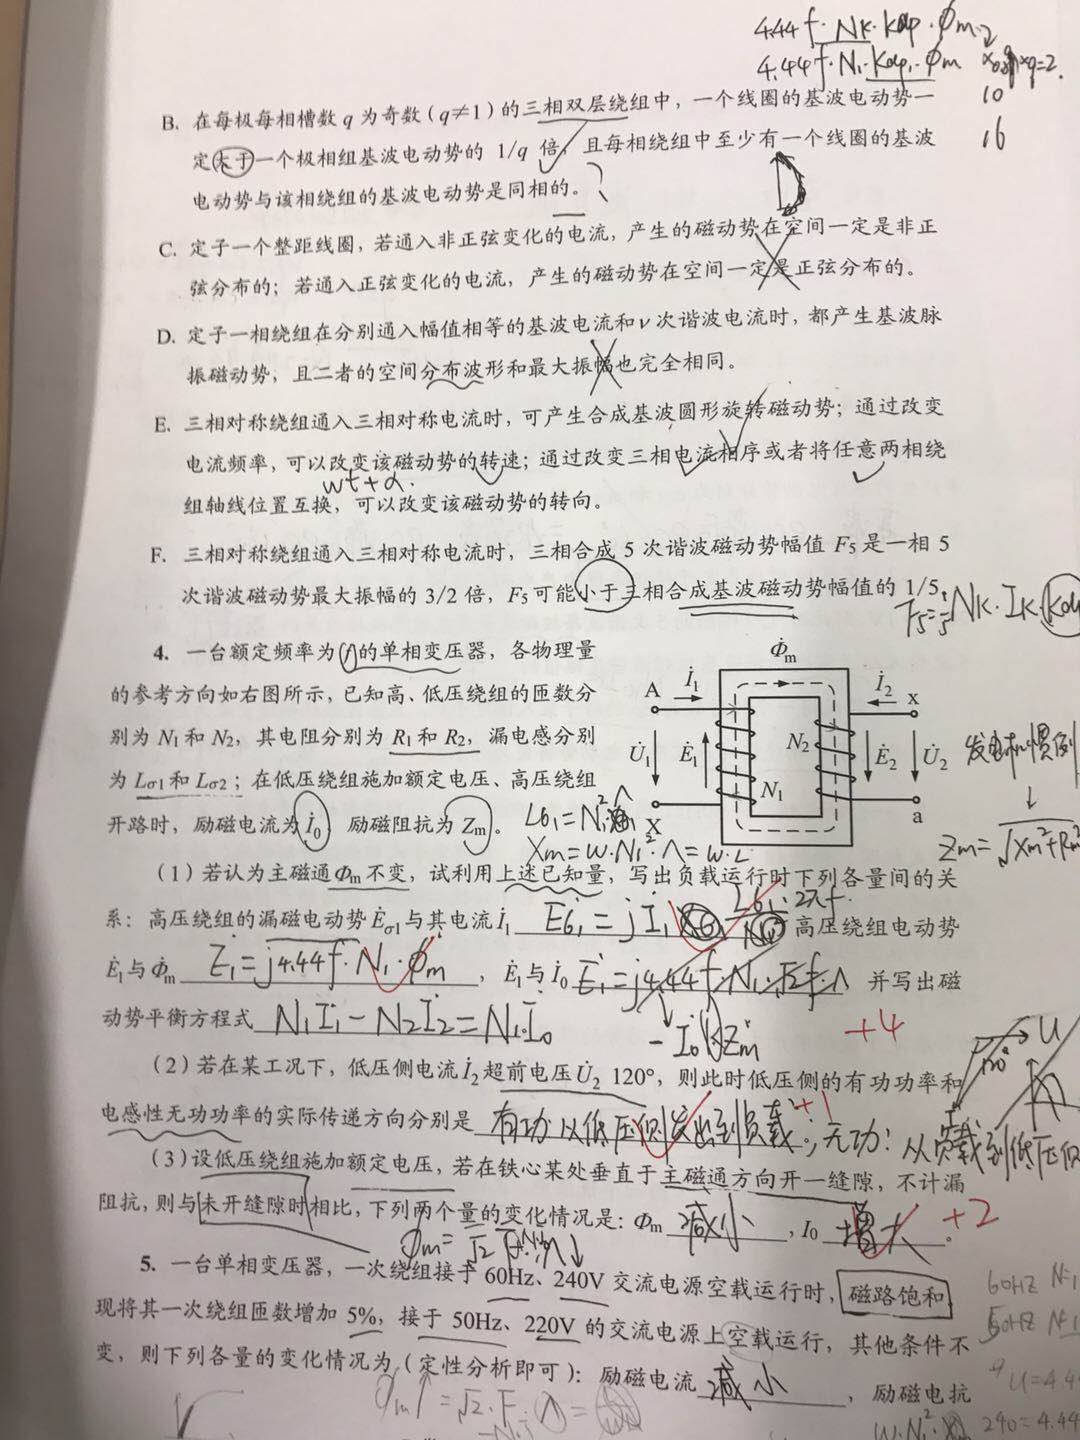 4.44f·Nk·kdp·Φm·2
4.44f·N1·kdp1·Φm
10
16
B. 在每极每相槽数 q 为奇数(q≠1)的三相双层绕组中，一个线圈的基波电动势一
定大于一个极相组基波电动势的 1/q 倍，且每相绕组中至少有一个线圈的基波
电动势与该相绕组的基波电动势是同相的。
C. 定子一个整距线圈，若通入非正弦变化的电流，产生的磁动势在空间一定是非正
弦分布的；若通入正弦变化的电流，产生的磁动势在空间一定是正弦分布的。
D. 定子一相绕组在分别通入幅值相等的基波电流和ν次谐波电流时，都产生基波脉
振磁动势，且二者的空间分布波形和最大振幅也完全相同。
E. 三相对称绕组通入三相对称电流时，可产生合成基波圆形旋转磁动势；通过改变
电流频率，可以改变该磁动势的转速；通过改变三相电流相序或者将任意两相绕
wt+α.
组轴线位置互换，可以改变该磁动势的转向。
F. 三相对称绕组通入三相对称电流时，三相合成 5 次谐波磁动势幅值 F5 是一相 5
次谐波磁动势最大振幅的 3/2 倍，F5 可能小于三相合成基波磁动势幅值的 1/5。
4. 一台额定频率为f1的单相变压器，各物理量
的参考方向如右图所示，已知高、低压绕组的匝数分
别为 N1 和 N2，其电阻分别为 R1 和 R2，漏电感分别
为 Lσ1 和 Lσ2；在低压绕组施加额定电压、高压绕组
开路时，励磁电流为 İ0，励磁阻抗为 Zm。
Φ̇m
A İ1 İ2 x
U̇1 Ė1 N2 Ė2 U̇2
N1
X a
发电机惯例
Zm=√Xm²+Rm²
Xm=w·N1²·Λ=w·L
(1) 若认为主磁通Φ̇m不变，试利用上述已知量，写出负载运行时下列各量间的关
系：高压绕组的漏磁电动势Ėσ1与其电流İ1 高压绕组电动势
Ė1与Φ̇m Ė1=j4.44f·N1·Φ̇m，Ė1与İ0 并写出磁
动势平衡方程式 N1İ1-N2İ2=N1·İ0
+4
(2) 若在某工况下，低压侧电流İ2超前电压U̇2 120°，则此时低压侧的有功功率和
电感性无功功率的实际传递方向分别是 有功从低压侧发出到负载，无功：从负载到低压侧
+1
(3) 设低压绕组施加额定电压，若在铁心某处垂直于主磁通方向开一缝隙，不计漏
阻抗，则与未开缝隙时相比，下列两个量的变化情况是：Φm 减小，I0 增大。
+2
5. 一台单相变压器，一次绕组接于 60Hz、240V 交流电源空载运行时，磁路饱和
现将其一次绕组匝数增加 5%，接于 50Hz、220V 的交流电源上空载运行，其他条件不
变，则下列各量的变化情况为（定性分析即可）：励磁电流 减小，励磁电抗
60HZ N·1
50HZ N·1